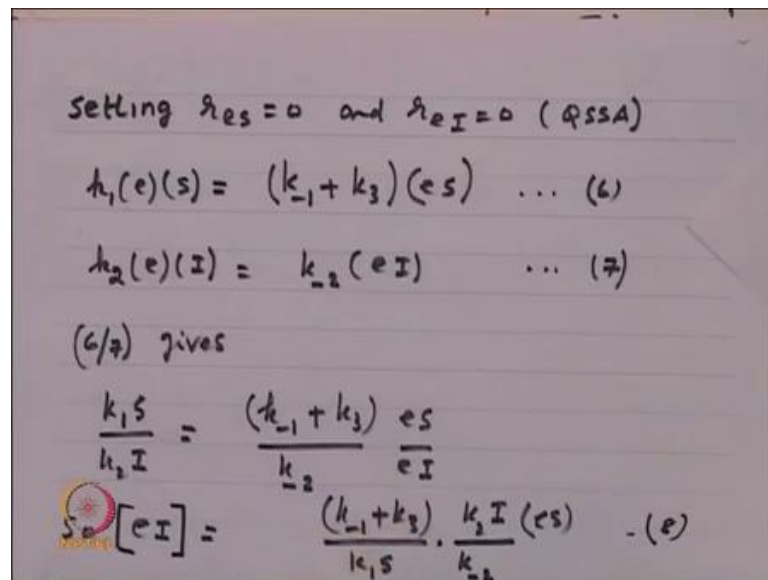 setting r_es = 0 and r_eI = 0 (QSSA)
k₁(e)(s) = (k₋₁ + k₃)(es) ... (6)
k₂(e)(I) = k₋₂(eI) ... (7)
(6/7) gives
k₁s / k₂I = (k₋₁ + k₃) / k₋₂ es / eI
so [eI] = (k₋₁ + k₃) / k₁s · k₂I / k₋₂ (es) - (8)